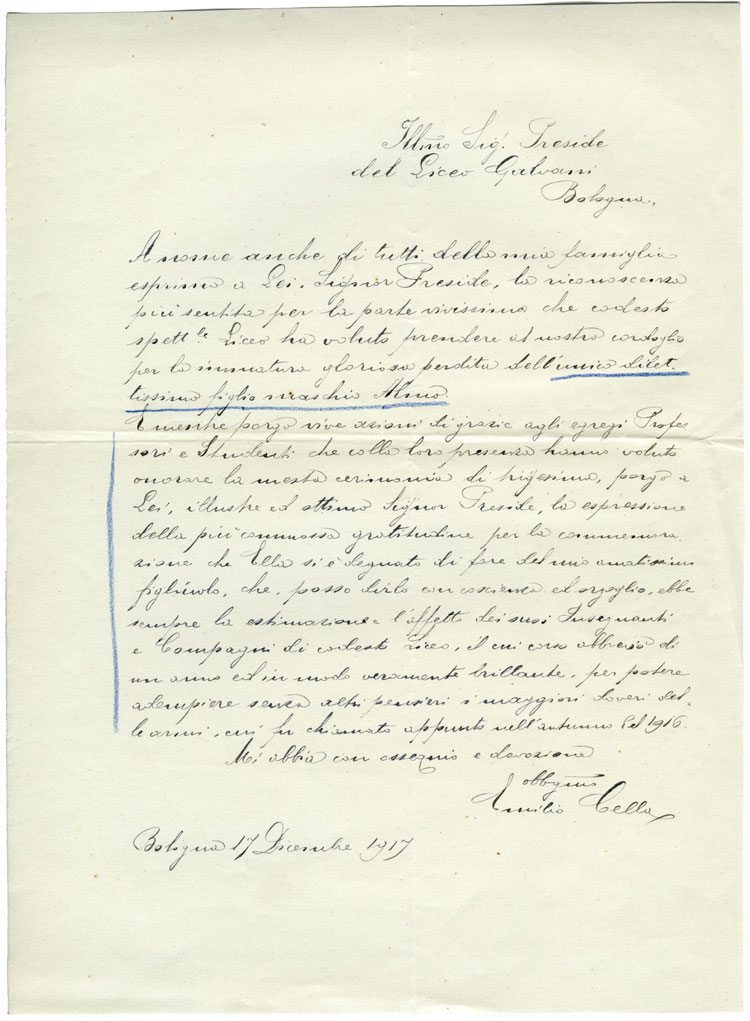 Ill.mo Sig. Preside
del Liceo Galvani
Bologna.
A nome anche di tutti della mia famiglia
esprimo a Lei, Signor Preside, la riconoscenza
più sentita per la parte vivissima che codesto
spett.le Liceo ha voluto prendere al nostro cordoglio
per la immatura gloriosa perdita dell'unico dilet-
tissimo figlio maschio
E mentre porgo vive azioni di grazie agli egregi Profes
sori e Studenti che colla loro presenza hanno voluto
onorare la mesta cerimonia di trigesima, porgo a
Lei, illustre ed ottimo Signor Preside, la espressione
della più commossa gratitudine per la commemora
zione che Ella si è degnato di fare del mio amatissimo
figliuolo, che, posso dirlo con coscienza ed orgoglio, ebbe
sempre la estimazione e l'affetto dei suoi Insegnanti
e Compagni di codesto Liceo, il cui corso abbreviò di
un anno ed in modo veramente brillante, per potere
adempiere senza altri pensieri i maggiori doveri del-
le armi, cui fu chiamato appunto nell'autunno del 1916.
Mi abbia con ossequio e devozione
obbgmo
Emilio Cella
Bologna 17 Dicembre 1917